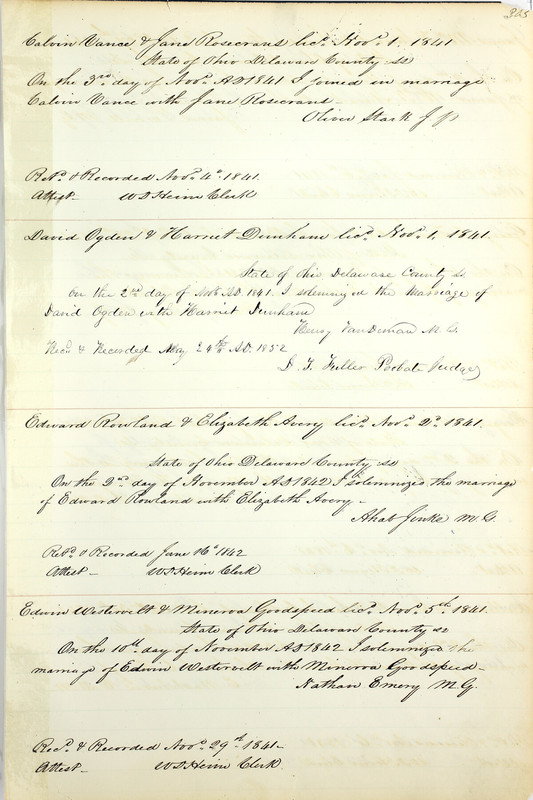 365
Calvin Vance & Jane Rosecrans licd. Novr. 1. 1841
State of Ohio Delawan County ss
On the 3rd day of Novr. AD 1841 I joined in marriage
Calvin Vance with Jane Rosecrans
Oliver Stark J P
Retd. & Recorded Novr. 4th. 1841.
Attest W D Heim Clerk
David Ogden & Harriet Dunham licd. Novr. 1. 1841.
State of Ohio Delaware County ss
On the 2nd day of Nov AD. 1841. I solemnized the Marriage of
David Ogden with Harriet Dunham
Henry VanDeman M. G.
Recd. & Recorded May 24th AD. 1852
D. T. Fuller Probate Judge
Edward Rowland & Elizabeth Avery licd. Novr. 2d. 1841.
State of Ohio Delaware County ss
On the 2nd day of November AD 1842 I solemnized the marriage
of Edward Rowland with Elizabeth Avery
Ahab Jinks M. G.
Retd. & Recorded June 16th 1842
Attest W D Heim Clerk
Edwin Westervelt & Minerva Goodspeed licd. Novr. 5th. 1841.
State of Ohio Delawan County ss
On the 10th. day of November AD 1842 I solemnized the
marriage of Edwin Westervelt with Minerva Goodspeed
Nathan Emery M. G.
Recd. & Recorded Novr. 29th. 1841
Attest W D Heim Clerk